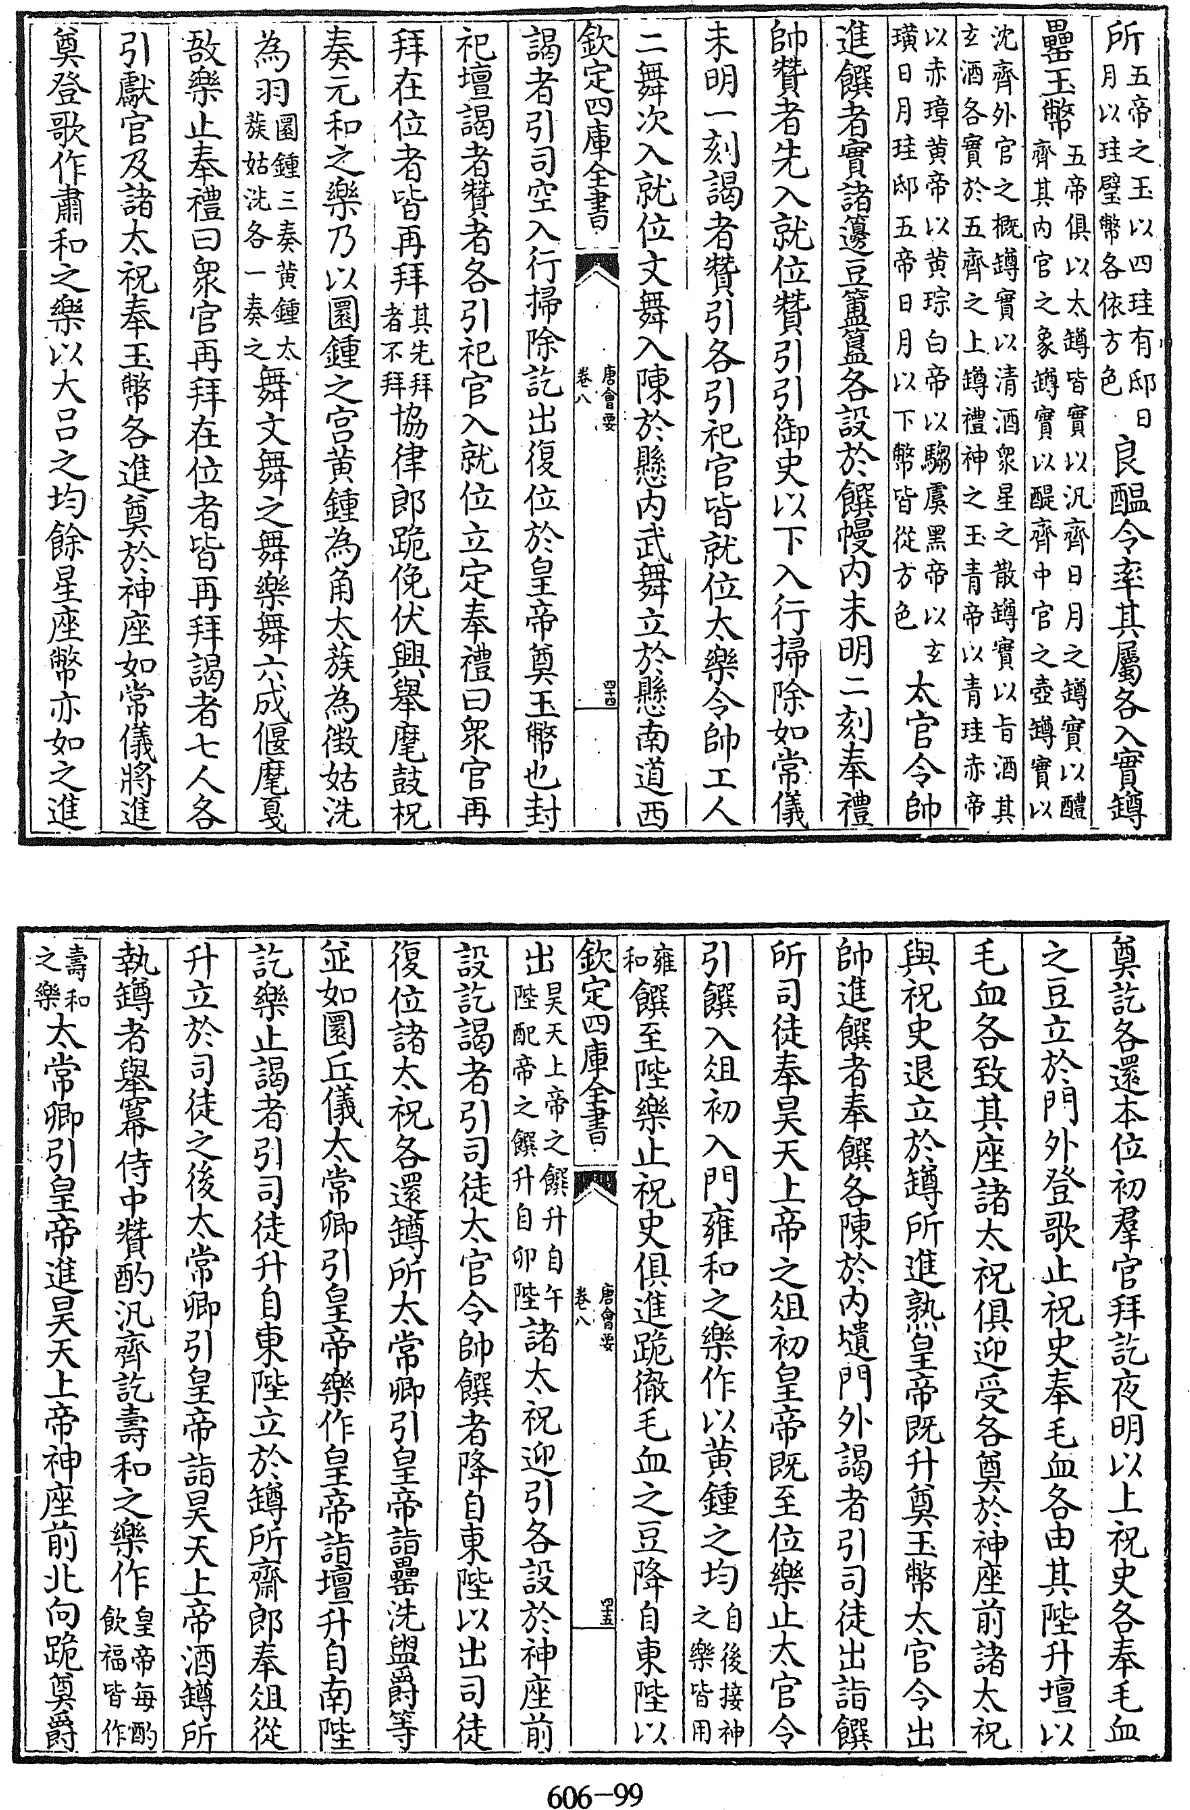 所五帝之玉以四珪有邸日月以珪璧幣各依方色良醖令率其屬各入實罇
罍玉幣五帝俱以太罇皆實以汎齊日月之罇實以醴齊其内官之象罇實以醍齊中官之壺罇實以
沈齊外官之概罇實以清酒衆星之散罇實以旨酒其玄酒各實於五齊之上罇禮神之玉青帝以青珪赤帝
以赤璋黄帝以黄琮白帝以騶虞黑帝以玄璜日月珪邸五帝日月以下幣皆從方色太官令帥
進饌者實諸籩豆簠簋各設於饌幔内未明二刻奉禮
帥贊者先入就位贊引引御史以下入行掃除如常儀
未明一刻謁者贊引各引祀官皆就位太樂令帥工人
二舞次入就位文舞入陳於懸内武舞立於懸南道西
欽定四庫全書
唐會要
卷八
四十四
謁者引司空入行掃除訖出復位於皇帝奠玉幣也封
祀壇謁者贊者各引祀官入就位立定奉禮曰衆官再
拜在位者皆再拜其先拜者不拜協律郎跪俛伏興舉麾鼓柷
奏元和之樂乃以圜鍾之宫黄鍾為角太蔟為徵姑洗
為羽圜鍾三奏黄鍾太蔟姑洗各一奏之舞文舞之舞樂舞六成偃麾戛
敔樂止奉禮曰衆官再拜在位者皆再拜謁者七人各
引獻官及諸太祝奉玉幣各進奠於神座如常儀將進
奠登歌作肅和之樂以大吕之均餘星座幣亦如之進
奠訖各還本位初羣官拜訖夜明以上祝史各奉毛血
之豆立於門外登歌止祝史奉毛血各由其陛升壇以
毛血各致其座諸太祝俱迎受各奠於神座前諸太祝
與祝史退立於罇所進熟皇帝既升奠玉幣太官令出
帥進饌者奉饌各陳於内壝門外謁者引司徒出詣饌
所司徒奉昊天上帝之俎初皇帝既至位樂止太官令
引饌入俎初入門雍和之樂作以黄鍾之均自後接神之樂皆用
雍和饌至陛樂止祝史俱進跪徹毛血之豆降自東陛以
欽定四庫全書
唐會要
卷八
四十五
出昊天上帝之饌升自午陛配帝之饌升自卯陛諸太祝迎引各設於神座前
設訖謁者引司徒太官令帥饌者降自東陛以出司徒
復位諸太祝各還罇所太常卿引皇帝詣罍洗盥爵等
並如圜丘儀太常卿引皇帝樂作皇帝詣壇升自南陛
訖樂止謁者引司徒升自東陛立於罇所齋郎奉俎從
升立於司徒之後太常卿引皇帝詣昊天上帝酒罇所
執罇者舉冪侍中贊酌汎齊訖壽和之樂作皇帝每酌飲福皆作
壽和之樂太常卿引皇帝進昊天上帝神座前北向跪奠爵
606-99